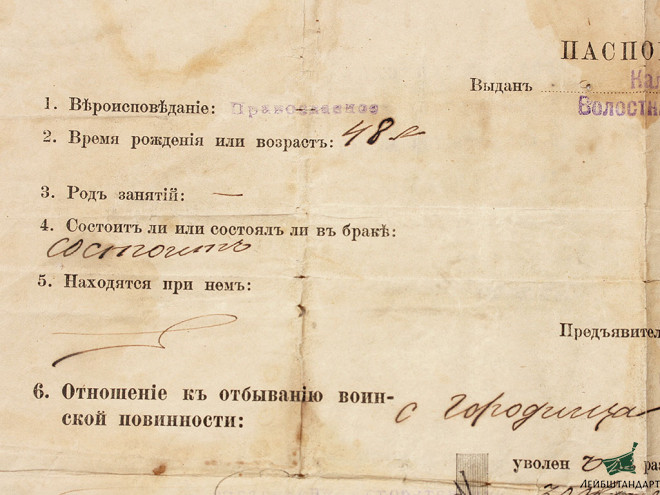 ПАСПО
Выданъ Кал
Волостн
1. Вѣроисповѣданіе: Православное
2. Время рожденія или возрастъ: 48 л
3. Родъ занятій: —
4. Состоитъ ли или состоялъ ли въ бракѣ:
состоитъ
5. Находятся при немъ:
Предъявител
6. Отношеніе къ отбыванію воин-
ской повинности:
с городища
уволен раз
ЛЕЙБШТАНДАРТ